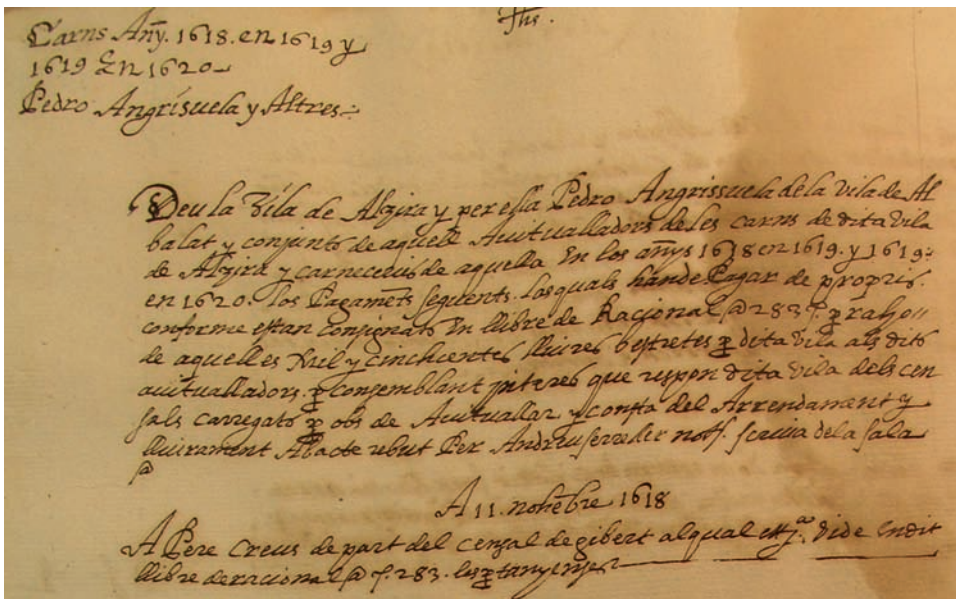 Jhs.
Carns Any. 1618. en 1619 y
1619 En 1620
Pedro Angrisuela y Altres
Deu la Vila de Alzira y per ella Pedro Angrissuela de la Vila de Al
balat y conjunts de aquell Avitualladors de les carns de dita Vila
de Alzira y carneceries de aquella En los anys 1618 en 1619. y 1619
en 1620. los Pagaments seguents. los quals han de Pagar de propris.
conforme estan consignats En llibre de Racional @ 283 f. p raho
de aquelles Mil y cinchcentes lliures bestretes p dita Vila als dits
avitualladors. p consemblant interes que respon dita Vila dels cen
sals carregats p obs de Avituallar y consta del Arrendament y
lliurament Ab acte rebut Per Andreu notj. scriva de la sala
@
A 11. nohebre 1618
A Pere Creus de part del censal de gibert al qual Vide En dit
llibre de racional @ f. 283. los